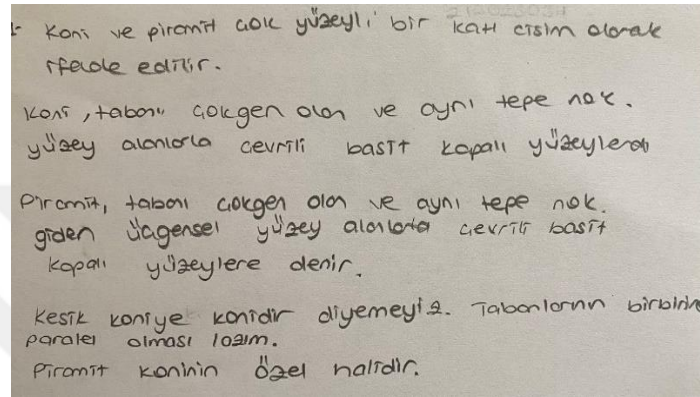 1- Koni ve piramit çok yüzeyli bir katı cisim olarak
ifade edilir.
Koni, tabanı çokgen olan ve aynı tepe nok.
yüzey alanlarla çevrili basit kapalı yüzeylerdir
Piramit, tabanı çokgen olan ve aynı tepe nok.
giden üçgensel yüzey alanlarla çevrili basit
kapalı yüzeylere denir.
Kesik koniye konidir diyemeyiz. Tabanlarının birbirine
paralel olması lazım.
Piramit koninin özel halidir.